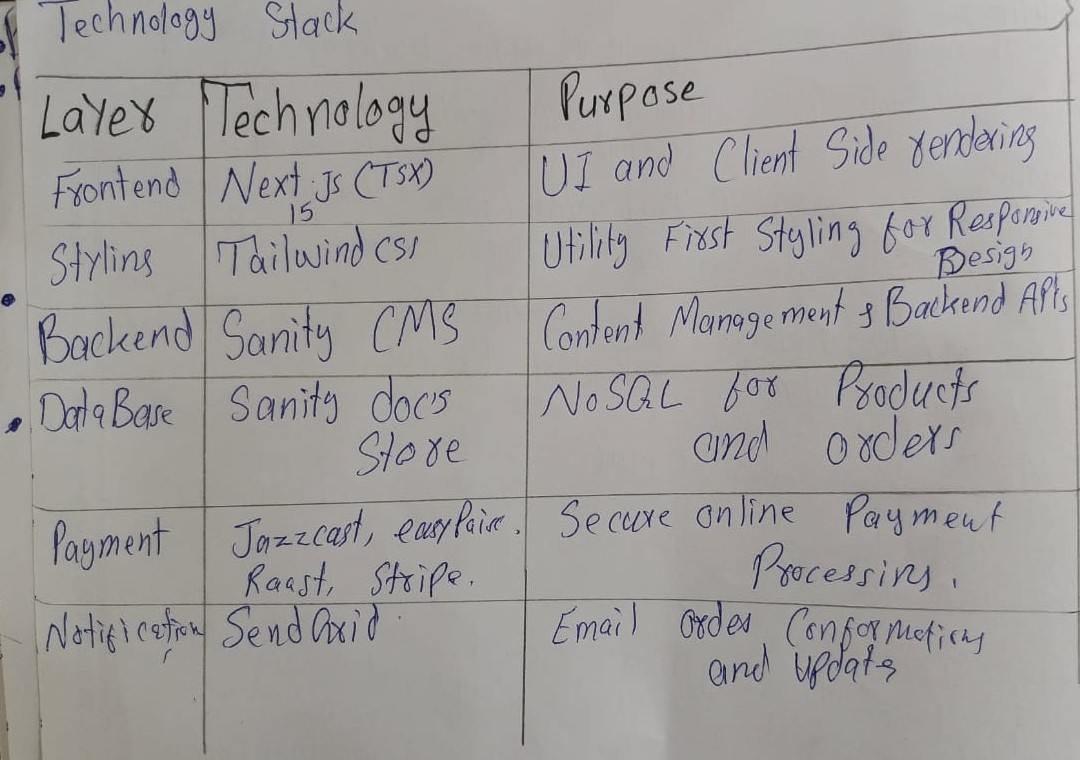 Technology Stack
Layer Technology Purpose
Frontend Next.Js (TSX) UI and Client Side rendering
15
Styling Tailwind CSS Utility First Styling for Responsive
Design
Backend Sanity CMS Content Management & Backend APIs
DataBase Sanity docs NoSQL for Products
Store and orders
Payment Jazzcast, easyPaise. Secure online Payment
Raast, Stripe. Processing.
Notification SendGrid Email order Conformations
and updats